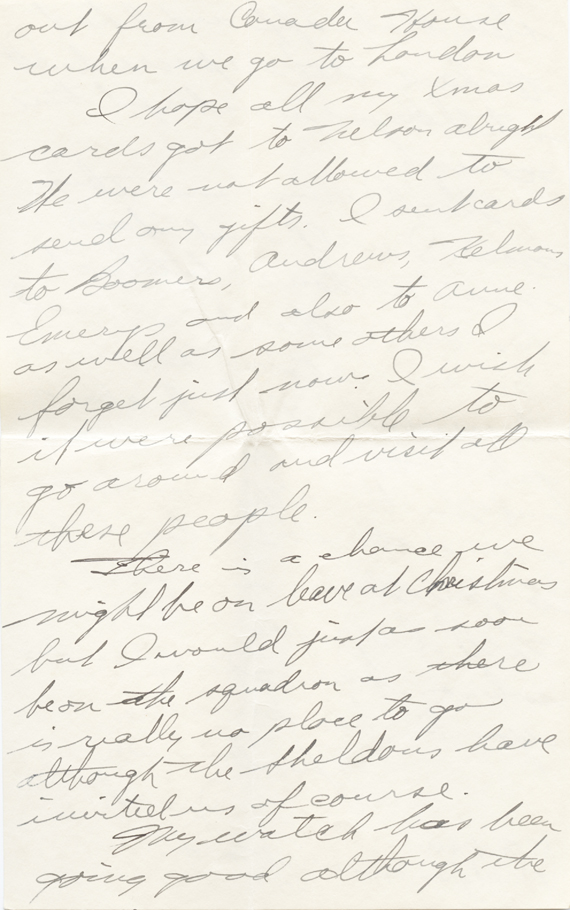 out from Canada House
when we go to London
I hope all my Xmas
cards got to Nelson alright
We were not allowed to
send any gifts. I sent cards
to Boomers, Andrews, Kelmans
Emerys and also to Anne.
as well as some others I
forget just now. I wish
it were possible to
go around and visit all
these people.
There is a chance we
might be on leave at Christmas
but I would just as soon
be on the squadron as there
is really no place to go
although the Sheldons have
invited us of course.
My watch has been
going good although the